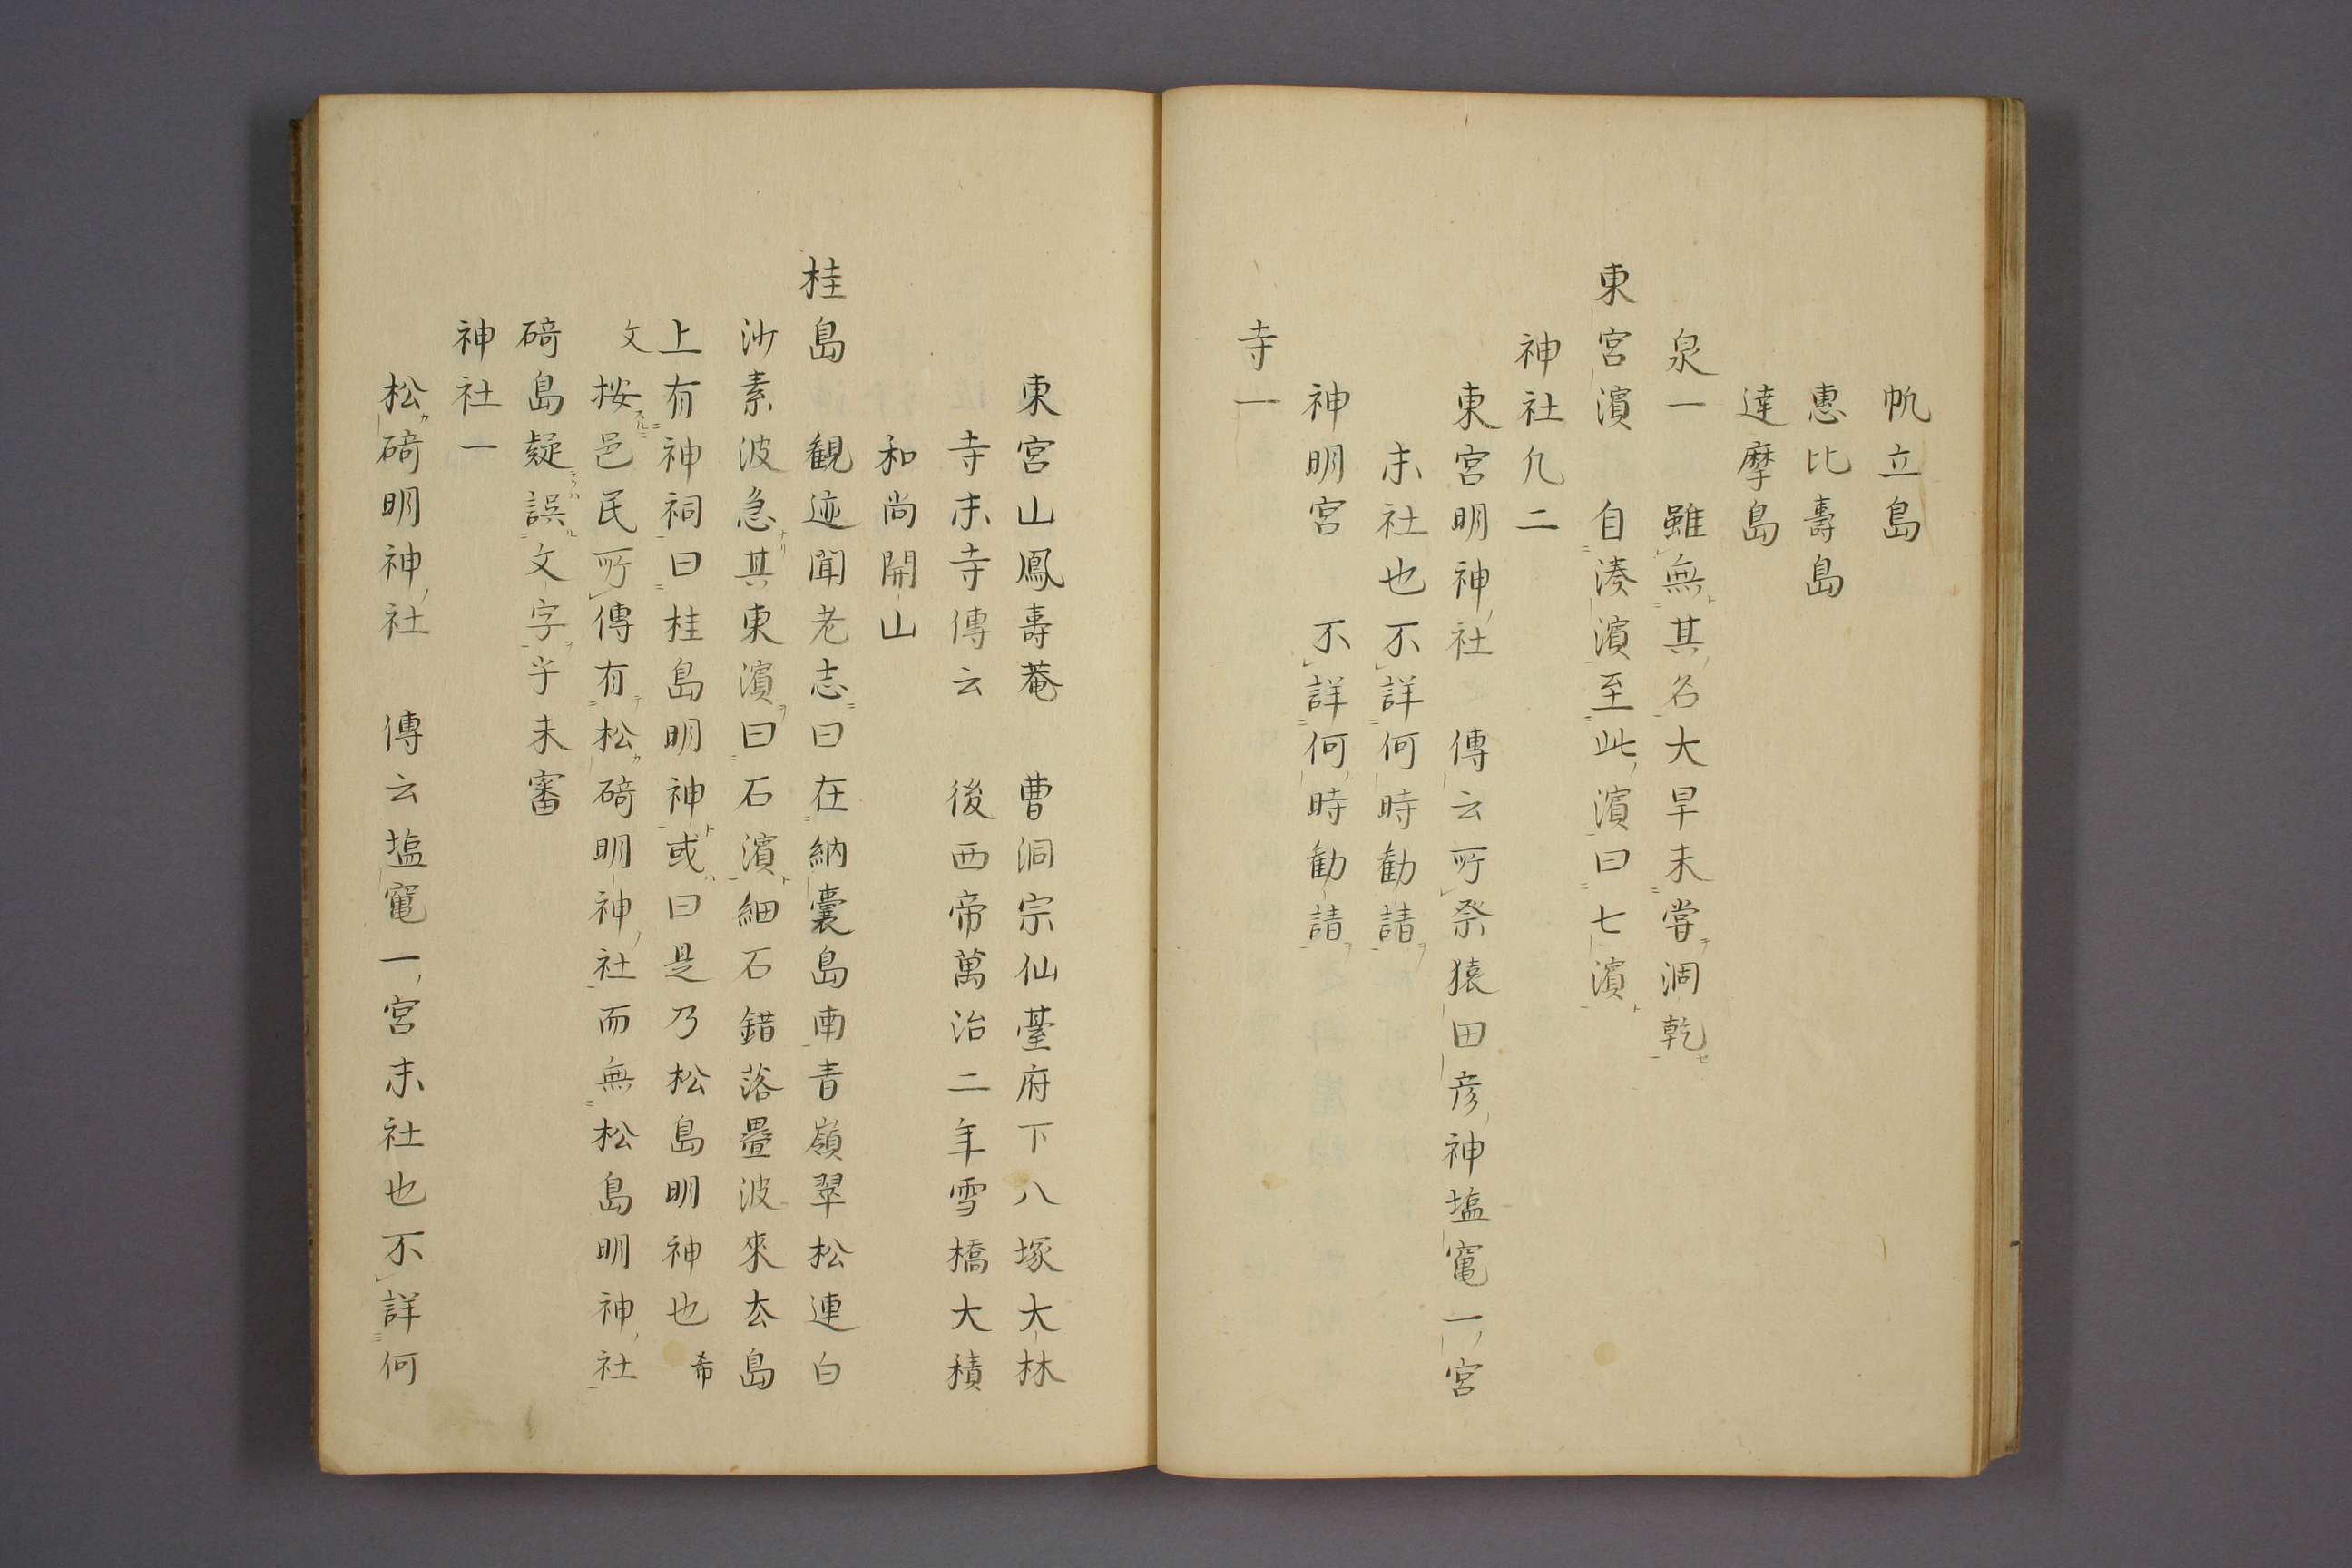 帆立島
惠比壽島
達摩島
泉一　雖無其名大旱未甞涸乾
東宮濱　自湊濱至此濱曰七濱
神社凢二
東宮明神社　傳云所祭猿田彦神塩竃一宮
末社也不詳何時勧請
神明宮　不詳何時勧請
寺一
東宮山鳳壽菴　曹洞宗仙臺府下八塚大林
寺末寺傳云　後西帝萬治二年雪橋大積
和尚開山
桂島　観迹聞老志曰在納嚢島南青嶺翠松連白
沙素波急其東濱曰石濱細石錯落疊波來去島
上有神祠曰桂島明神或曰是乃松島明神也希
文按邑民所傳有松碕明神社而無松島明神社
碕島疑誤文字乎未審
神社一
松碕明神社　傳云塩竃一宮末社也不詳何